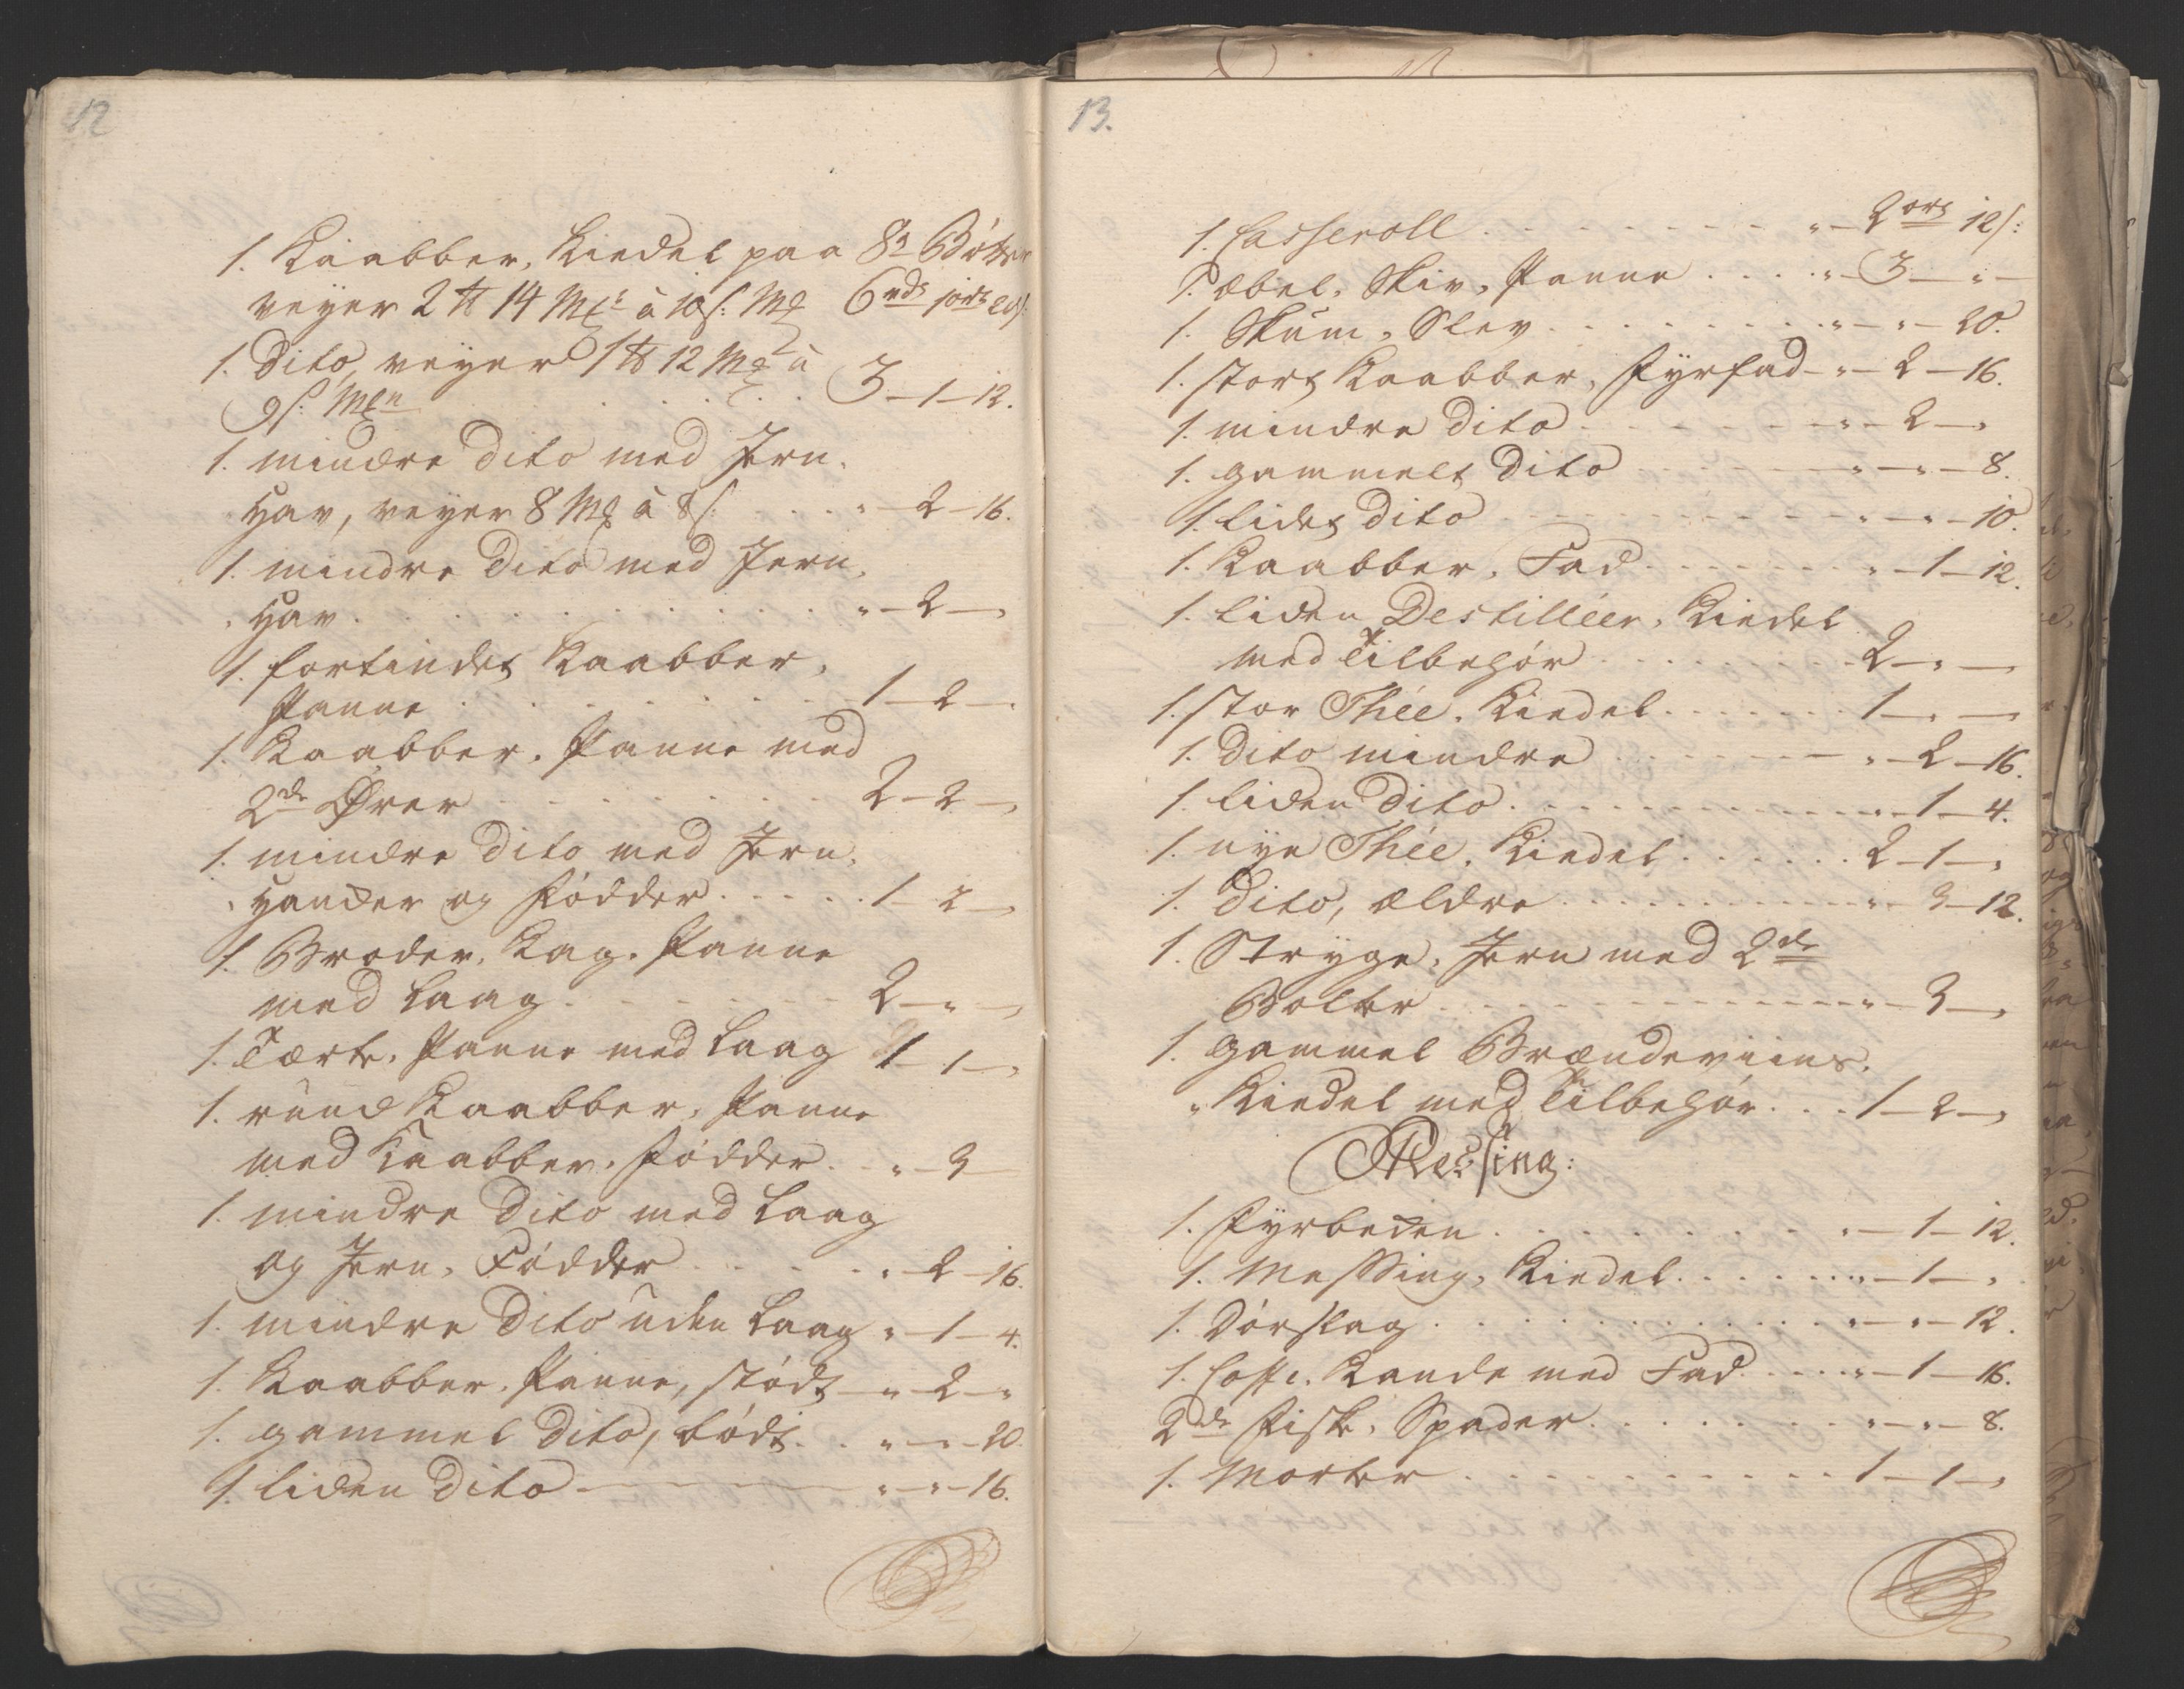 12
1. Kaabber, Kiedel paa 8te Bøtter
veyer 2 ℔ 14 Mk: à 10 s: Mk 6 rd 1 ort 20 s:
1. Dito, veyer 1 ℔ 12 Mk à
9 s: Mkn . . . . . 3 – 1 – 12.
1. mindre Dito med Jern,
Hav, veyer 8 Mk à 8 s: . . . . " – 2 – 16.
1. mindre Dito med Jern,
Hav. . . . . . . " – 2 – "
1. fortindet Kaabber,
Panne . . . . . . 1 – 2 – "
1. Kaabber, Panne med
2de Ører . . . . . . 2 – 2 – "
1. mindre Dito med Jern,
Hander og Fødder . . . . . 1 – 2 – "
1. Broder, Kag, Panne
med Laag . . . . . . 2 – " – "
1. Tært, Panne med Laag 1 – 1 – "
1. rund Kaabber, Panne
med Kaabber, Fødder . . " – 3
1. mindre Dito med Laag
og Jern, Fødder . . . . . " – 2 – 16.
1. mindre Dito uden Laag " – 1 – 4.
1. Kaabber, Panne, stødt – " – 2 – "
1. gammel Dito, bødt . . " – " – 20.
1. liden Dito – " – " – 16.
13.
1. Casseroll . . . . . . . " – 2 ort 12 s:
1. Æbel, Skiv, Panne . . . . " – 3 – " –
1. Skum, Slev . . . . . . . " – " – 20.
1. stort Kaabber, Fyrfad – " – 2 – 16.
1. mindre Dito . . . . . . " – 2 – "
1. gammelt Dito . . . . . . " – " – 8.
1. lidet Dito . . . . . . . " – " – 10.
1. Kaabber, Fad . . . . . . " – 1 – 12.
1. liden Destilléer, Kiedel
med Tilbehør . . . . . . 2 – " – "
1. stor Thée, Kiedel . . . . . . 1 – " – "
1. Dito mindre . . . . . . " – 2 – 16.
1. liden Dito . . . . . . . " – 1 – 4.
1. nye Thée, Kiedel . . . . . . 2 – 1 – "
1. Dito, ældre . . . . . . . " – 3 – 12.
1. Stryge, Jern med 2de
Bolter . . . . . . . " – 3 – "
1. gammel Brændeviins,
Kiedel med Tilbehør . . . 1 – 2 – "
Messing:
1. Fyrbeden . . . . . . . " – 1 – 12.
1. Messing, Kiedel . . . . . . " – 1 – "
1. Dørslag . . . . . . . " – " – 12.
1. Coffe, Kande med Fad . . . . " – 1 – 16.
2de Fisk, Spader . . . . . . " – " – 8.
1. Morter . . . . . . . 1 – 1 – "